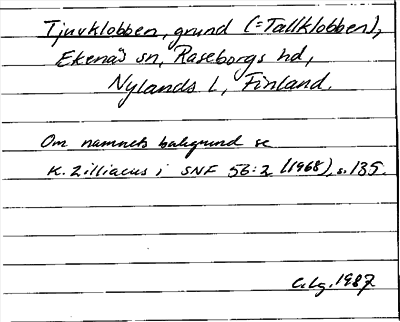 Tjuvklobben, grund (=Tallklobben),
Ekenäs sn, Raseborgs hd,
Nylands l, Finland.
Om namnets bakgrund se
K. Zilliacus i SNF 56:2 (1968), s. 135.
C.Lg. 1987